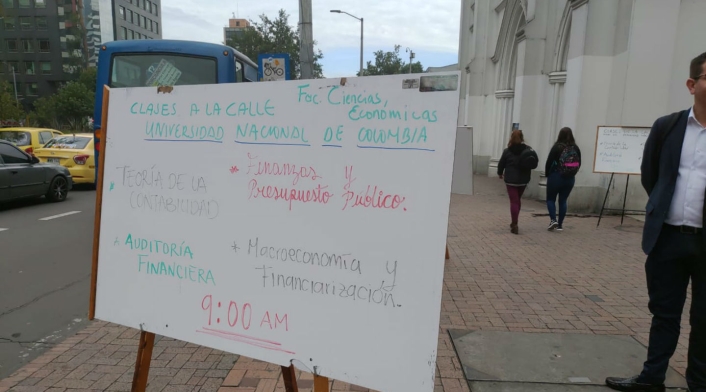 CLASES A LA CALLE Fac. Ciencias,
Económicas
UNIVERSIDAD NACIONAL DE COLOMBIA
* TEORÍA DE LA
CONTABILIDAD
* Finanzas y
Presupuesto Público.
* AUDITORÍA
FINANCIERA
* Macroeconomía y
Financiarización.
9:00 AM